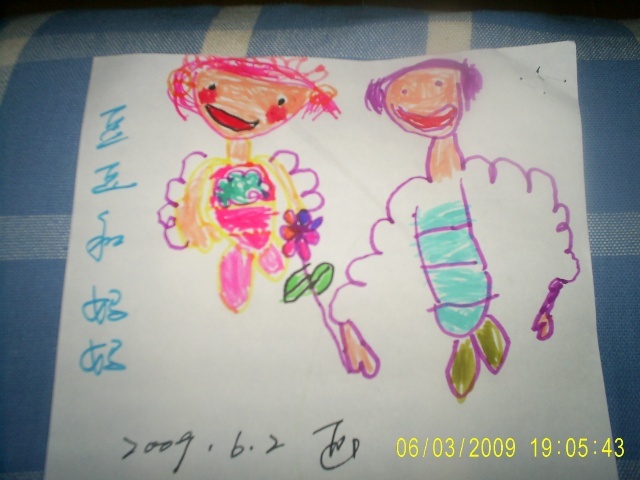 和妈妈
2009.6.2 画
06/03/2009 19:05:43